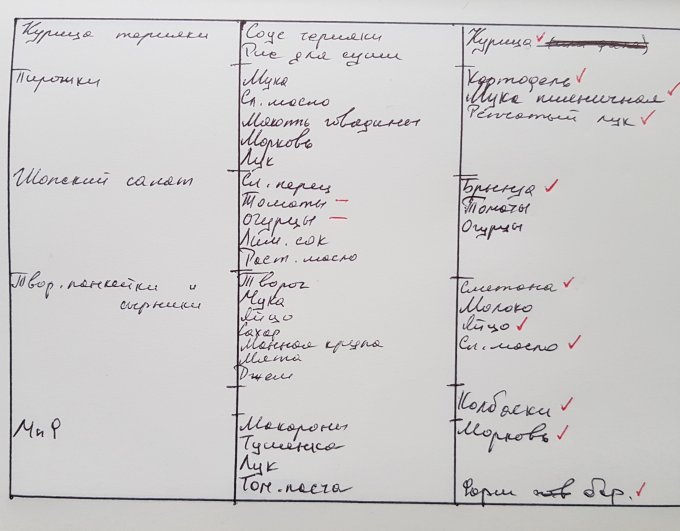 Курица терияки
Соус терияки
Рис для суши
Курица
Пирожки
Мука
Сл. масло
Мякоть говядины
Морковь
Лук
Картофель
Мука пшеничная
Репчатый лук
Шопский салат
Сл. перец
Томаты –
Огурцы –
Лим. сок
Раст. масло
Брынза
Томаты
Огурцы
Твор. панкейки и
сырники
Творог
Мука
Яйцо
Сахар
Манная крупа
Мята
Джем
Сметана
Молоко
Яйцо
Сл. масло
Колбаски
МиФ
Макароны
Тушенка
Лук
Том. паста
Морковь
Фарш